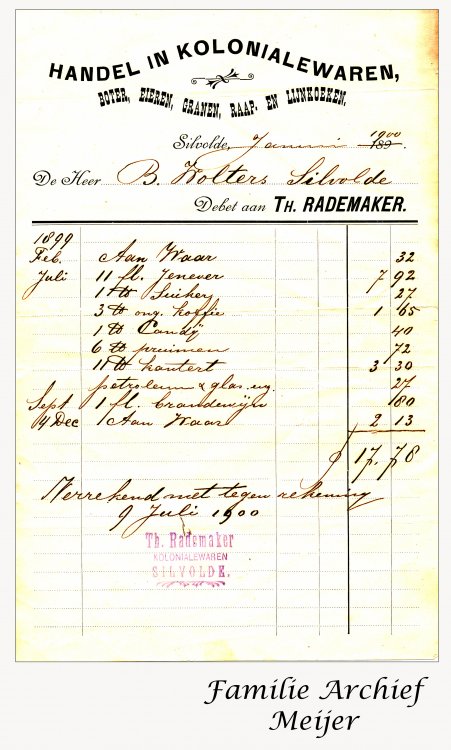 HANDEL IN KOLONIALEWAREN,
BOTER, EIEREN, GRANEN, RAAP- EN LIJNKOEKEN.
Silvolde, Januari 1900 189
De Heer B. Wolters Silvolde
Debet aan TH. RADEMAKER.
1899
Feb. Aan Waar 32
Juli 11 fl. Jenever 7 92
1 tb Suiker 27
3 tb ong. koffie 1 65
1 tb Candij 40
6 tb pruimen 72
11 tb kantert 3 30
petroleum & glas. 27
Sept 1 fl. brandewijn 180
4 Dec 1 Aan Waar 2 13
17.78
Verrekend met tegen rekening
9 Juli 1900
Th. Rademaker
KOLONIALEWAREN
SILVOLDE.
Familie Archief
Meijer